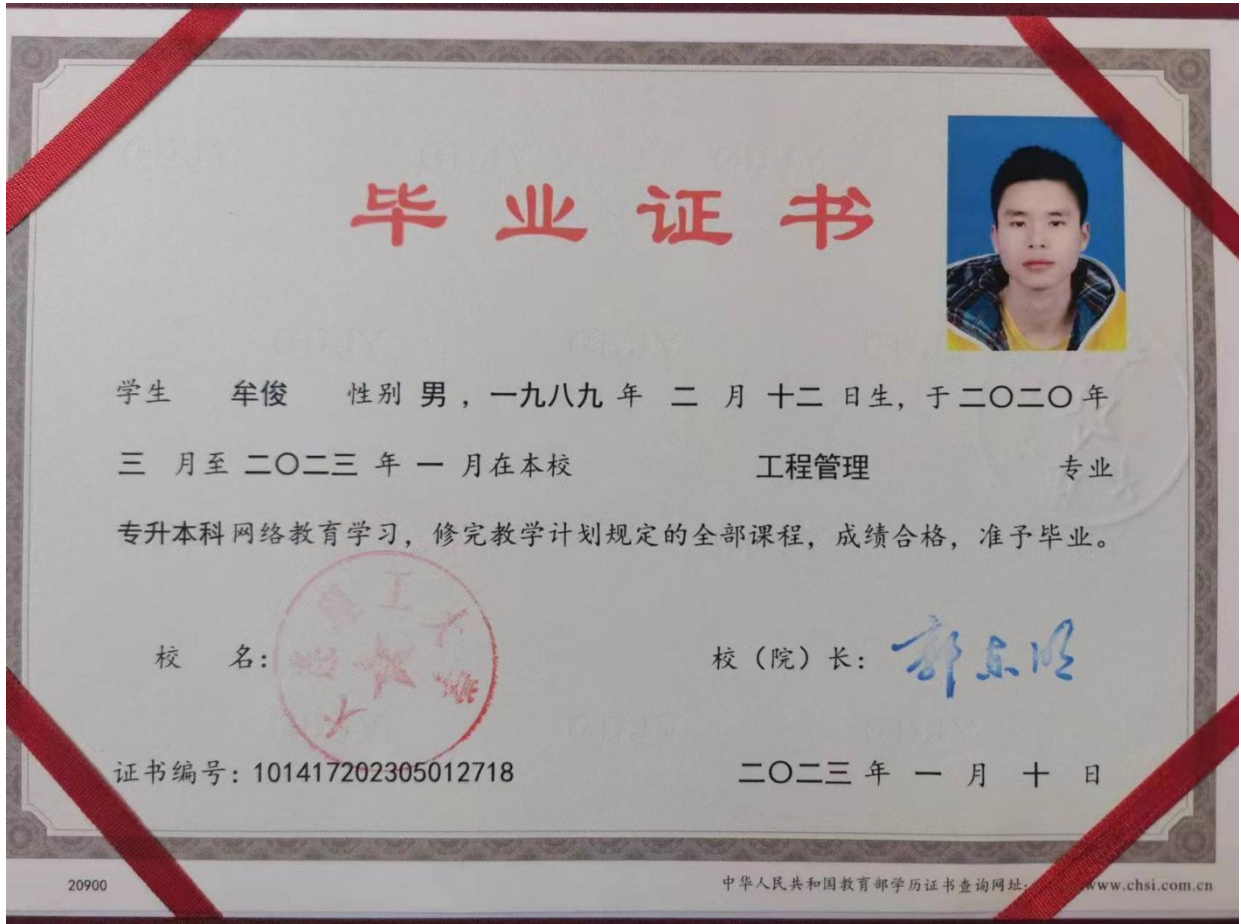 毕业证书
学生 牟俊 性别 男，一九八九 年 二 月 十二 日生，于 二〇二〇 年
三 月至 二〇二三 年 一 月在本校 工程管理 专业
专升本科 网络教育学习，修完教学计划规定的全部课程，成绩合格，准予毕业。
校 名：
大连理工大学
校（院）长：郭东明
证书编号：101417202305012718 二〇二三 年 一 月 十 日
20900 中华人民共和国教育部学历证书查询网址: www.chsi.com.cn